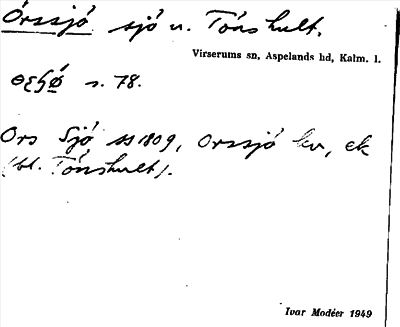 Orssjö sjö u. Tönshult.
Virserums sn, Aspelands hd, Kalm. l.
s. 78.
Ors Sjö ss 1809, Orssjö kv, ek
(bl. Tönshult).
Ivar Modéer 1949